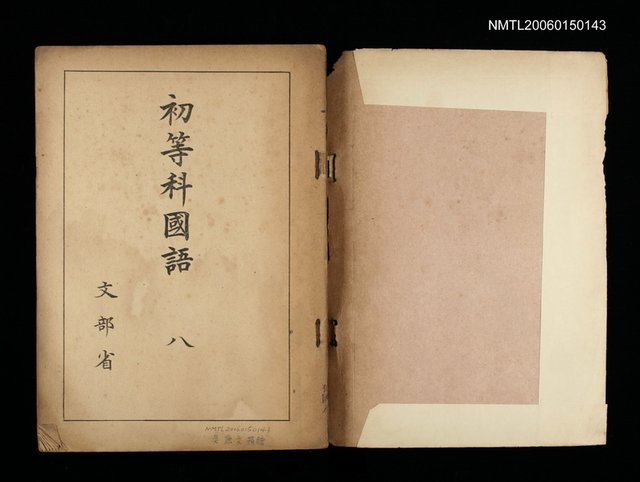 NMTL20060150143
初等科國語 八
文部省
NMTL20060150143